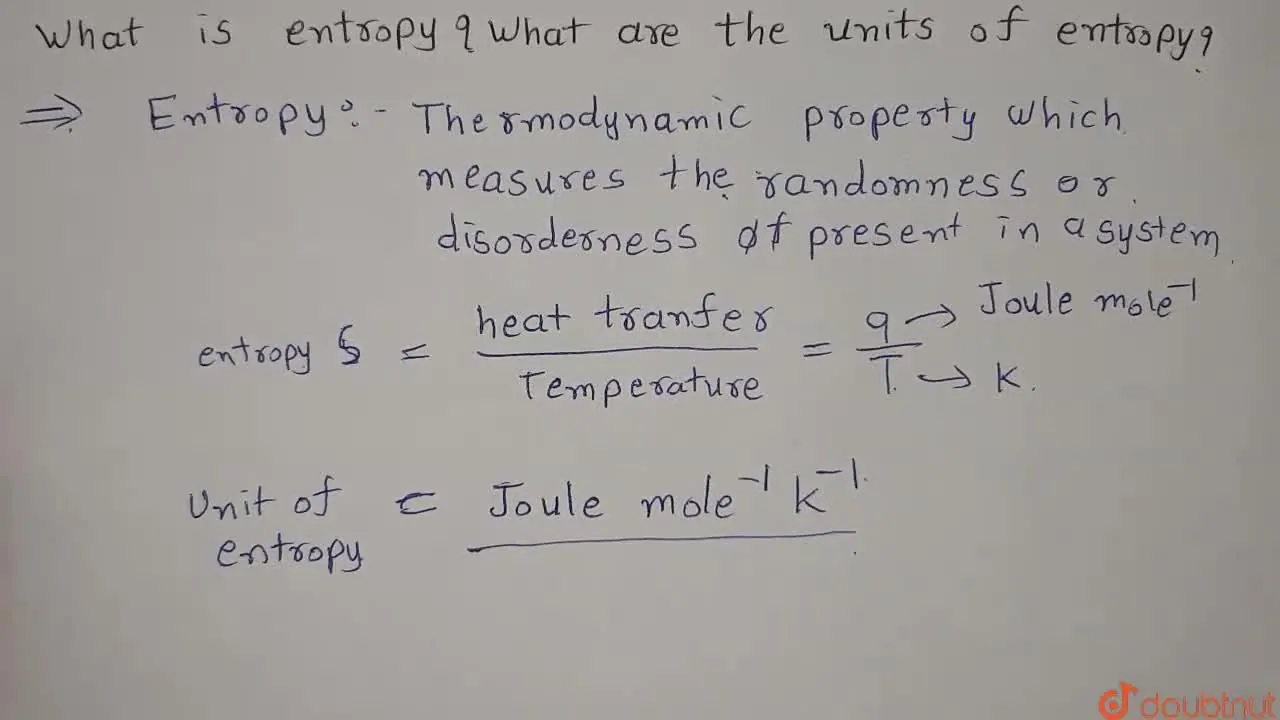 What is entropy? What are the units of entropy?
⇒ Entropy:- Thermodynamic property which
measures the randomness or
disorderness of present in a system
entropy S = heat tranfer / Temperature = q → Joule mole⁻¹ / T → K.
Unit of entropy = Joule mole⁻¹ K⁻¹
doubtnut